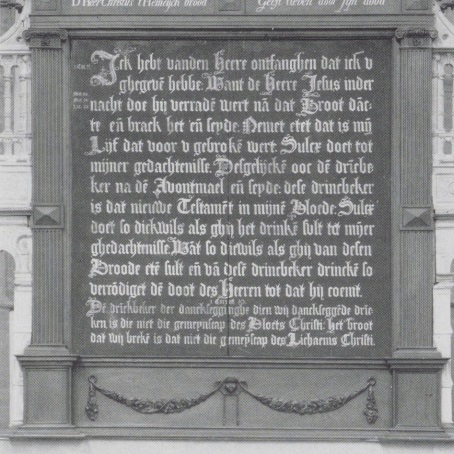 D'Heer Christus t'Hemelsch brood Geeft leven door sijn dood
Ick hebt vanden Heere ontfanghen dat ick v
ghegevē hebbe. Want de Heere Jesus inder
nacht doe hij verradē wert nā dat Broot dāc-
te eñ brack het eñ seyde. Nemet etet dat is mijn
Lijf dat voor v gebrokē wert. Sulcx doet tot
mijner gedachtenisse. Desgelijckē ooc dē drīcbe-
ker na dē Avontmael eñ seyde: dese drincbeker
is dat nieuwe Testamēt in mijnē Bloede: Sulcx
doet so dickwils als ghij het drinkē sult tot mijner
ghedachtenisse. Wāt so dicwils als ghij van desen
Broode etē sult eñ vā desē drincbeker drinckē so
verrādiget dē doot des Heeren tot dat hij coemt.
Dē drīckbeker der dancksegginghe dien wij dancksegghēde drīc-
ken is die niet die gemeynscap des Bloets Christi: het broot
dat wij brekē is dat niet die gemeyscap des Lichaems Christi.